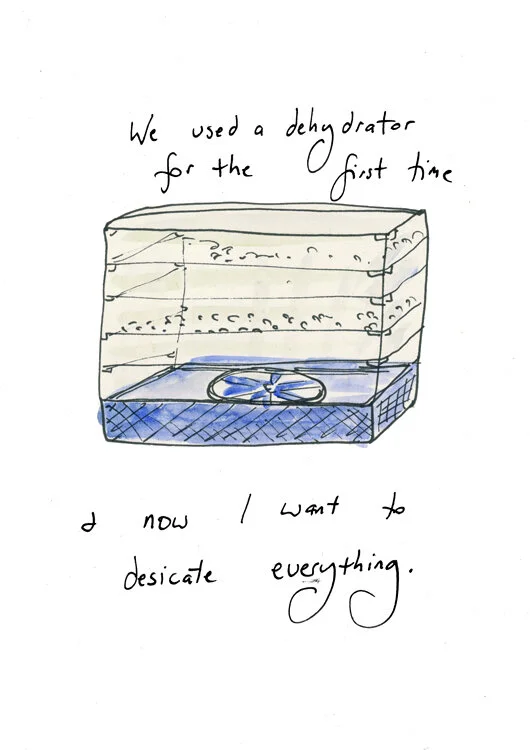 We used a dehydrator
for the first time
& now I want to
desicate everything.